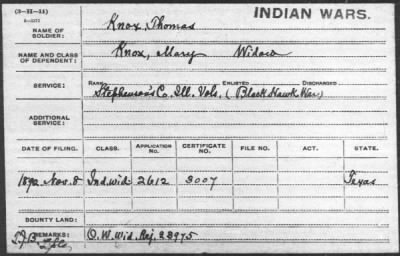 (3-31-11)
INDIAN WARS.
NAME OF SOLDIER: Knox, Thomas
NAME AND CLASS OF DEPENDENT: Knox, Mary Widow
SERVICE: RANK ENLISTED DISCHARGED
Stephenson's Co. Ill. Vols. (Black Hawk War)
ADDITIONAL SERVICE:
DATE OF FILING. CLASS. APPLICATION NO. CERTIFICATE NO. FILE NO. ACT. STATE.
1892 Nov. 8 Ind. wid. 2612 3007 Texas
BOUNTY LAND:
REMARKS: O. W. Wid. Rej. 23975